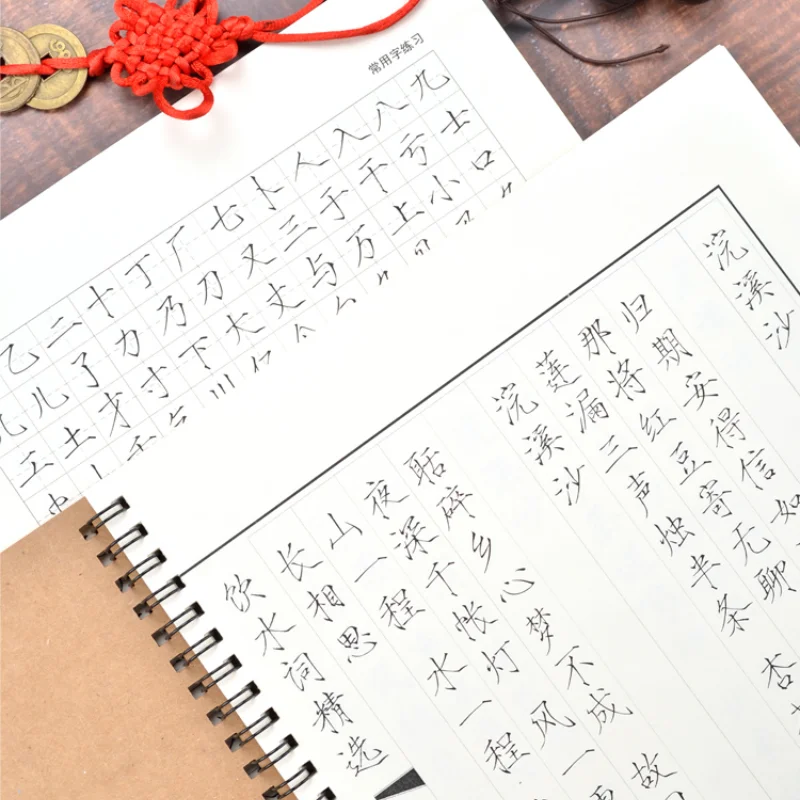 常用字练习
乙二十丁厂七卜人入八九
几儿了力乃刀又三于干亏士
工土才寸下大丈与万上小口
川亿个
浣溪沙
归期安得信如
那将红豆寄无聊
莲漏三声烛半条 杏
浣溪沙
聒碎乡心梦不成 故
夜深千帐灯 风一
山一程 水一程
长相思
饮水词精选